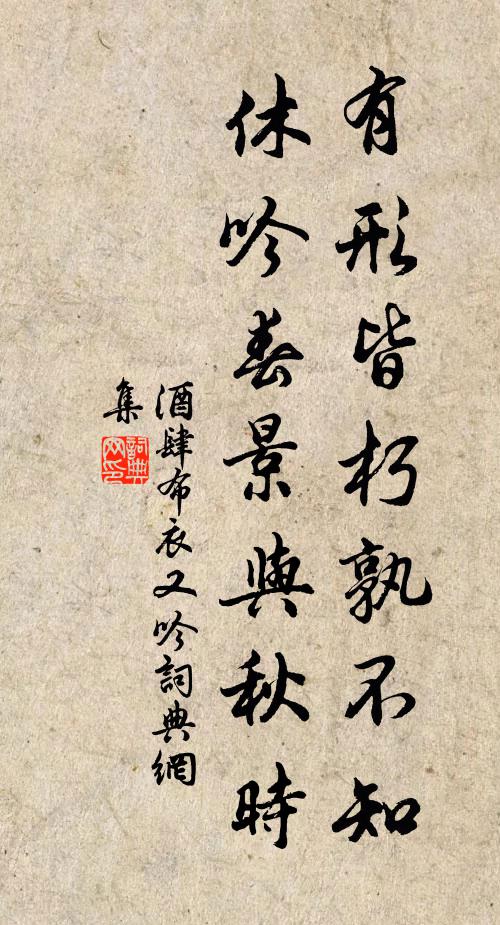 有形皆朽孰不知
休吟春景與秋時
酒肆布衣又吟詞典網
集
詞典網印